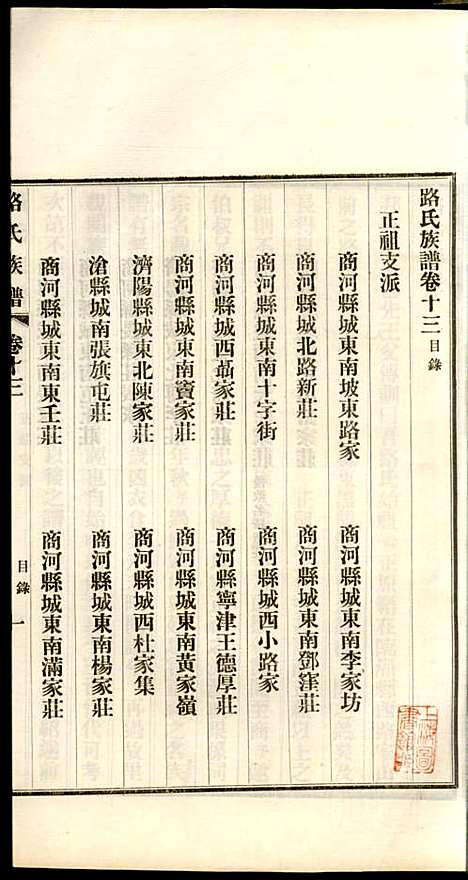 路氏族譜卷十三 目錄
正祖支派
商河縣城東南坡東路家
商河縣城東南李家坊
商河縣城北路新莊
商河縣城東南鄧窪莊
商河縣城東南十字街
商河縣城西小路家
商河縣城西聶家莊
商河縣寧津王德厚莊
商河縣城東南竇家莊
商河縣城東南黃家嶺
濟陽縣城東北陳家莊
商河縣城西杜家集
滄縣城南張旗屯莊
商河縣城東南楊家莊
商河縣城東南東王莊
商河縣城東南滿家莊
路氏族譜
卷十三
目錄 一
上海圖書館藏